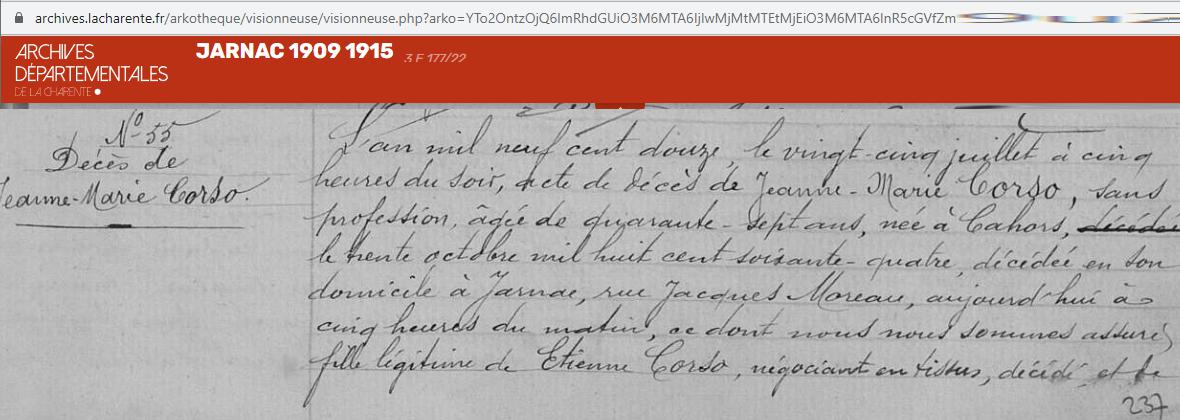 archives.lacharente.fr/arkotheque/visionneuse/visionneuse.php?arko=YTo2OntzOjQ6ImRhdGUiO3M6MTA6IjIwMjMtMTEtMjEiO3M6MTA6InR5cGVfZm
ARCHIVES
DÉPARTEMENTALES
DE LA CHARENTE
JARNAC 1909 1915
3 E 177/22
N° 55
Décès de
Jeanne-Marie Corso.
L'an mil neuf cent douze, le vingt-cinq juillet à cinq
heures du soir, acte de décès de Jeanne-Marie Corso, sans
profession, âgée de quarante-sept ans, née à Cahors, décédée
le trente octobre mil huit cent soixante-quatre, décédée en son
domicile à Jarnac, rue Jacques Moreau, aujourd'hui à
cinq heures du matin, ce dont nous nous sommes assuré,
fille légitime de Etienne Corso, négociant en tissus, décédé, et de
237